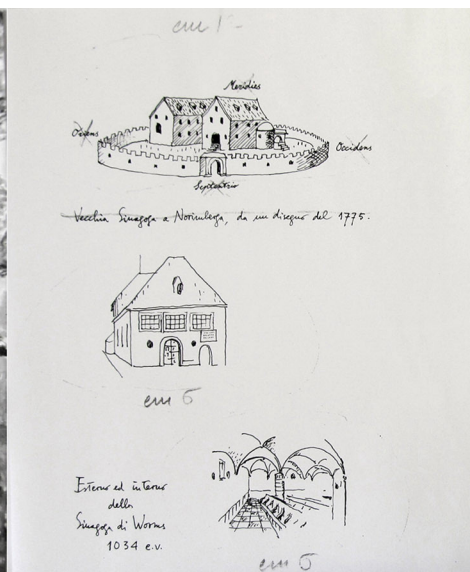 cm 1
Meridies
Oriens
Occidens
Septentrio
Vecchia Sinagoga a Norimberga, da un disegno del 1775.
cm 6
Esterno ed interno
della
Sinagoga di Worms
1034 e.v.
cm 5